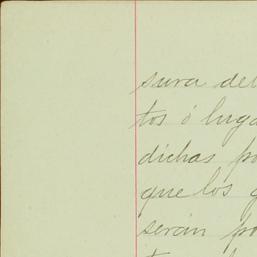 sura de
tos ó luga
dichas po
que los g
serán po